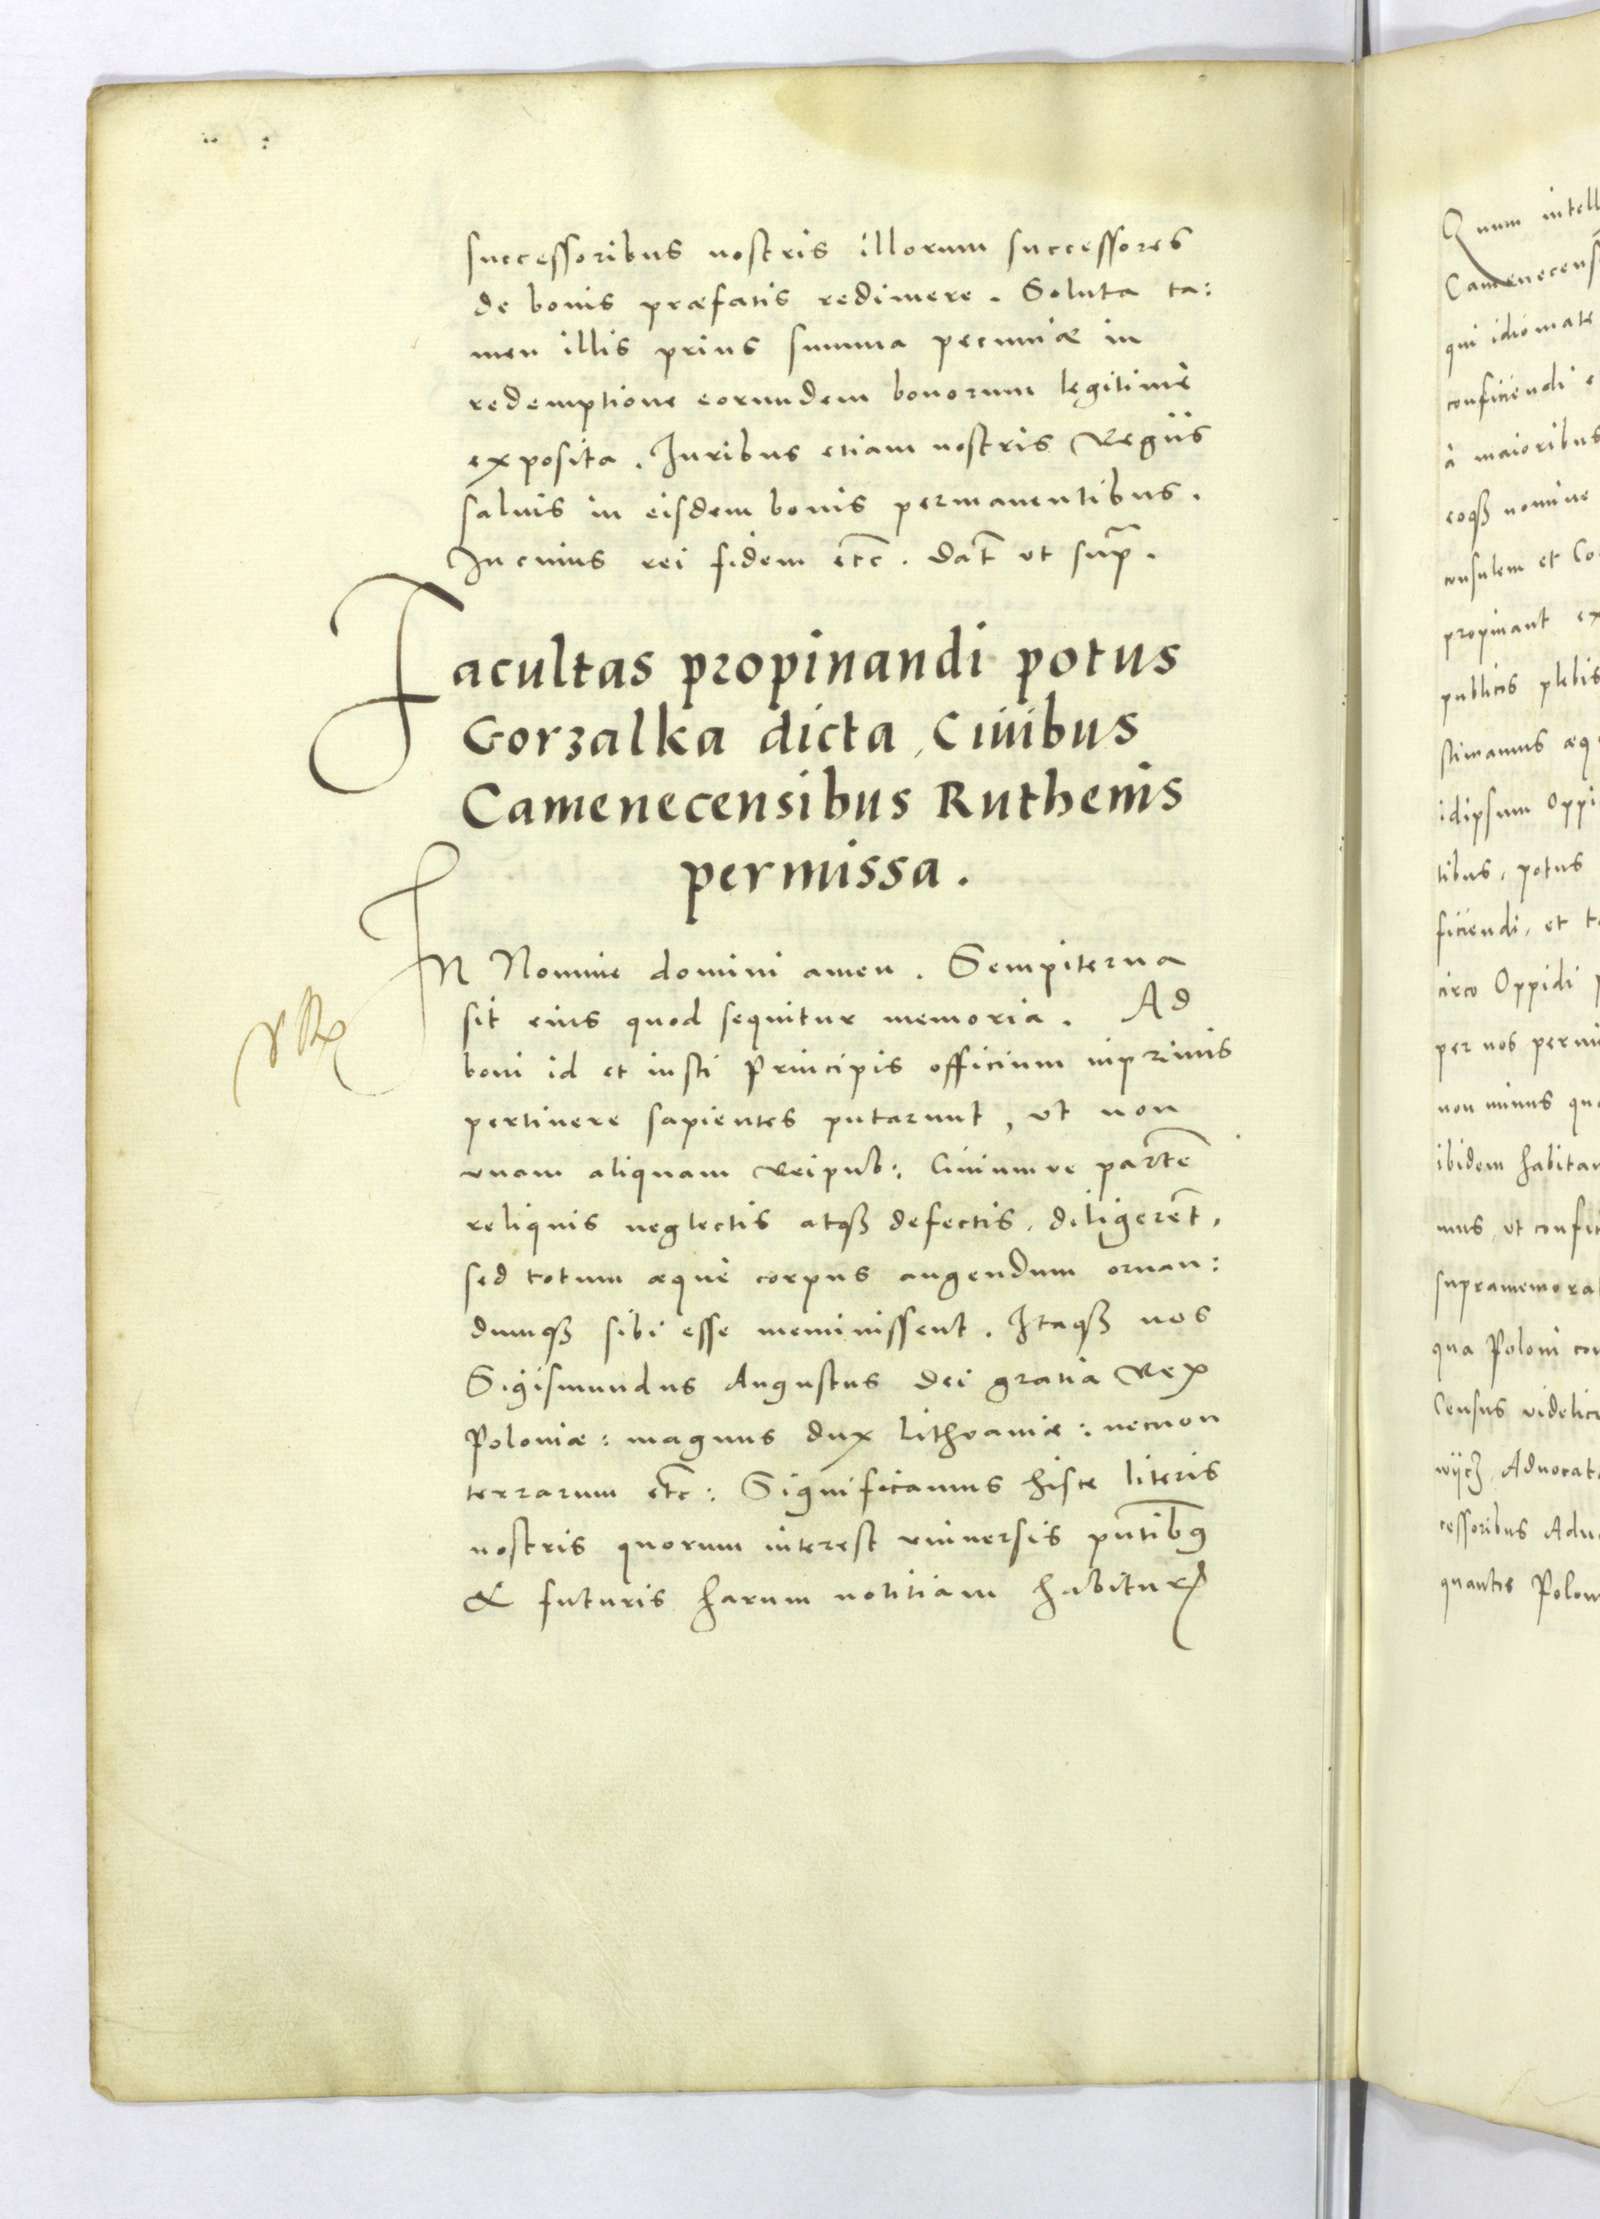 successoribus nostris illorum successores
de bonis præfatis redimere. Soluta ta:
men illis prius summa pecuniæ in
redemptione eorundem bonorum legitimè
exposita. Iuribus etiam nostris Regiis
salvis in eisdem bonis permanentibus.
In cuius rei fidem etc̄. dat̄ ut sup̄.
Facultas propinandi potus
Gorzalka dicta, Civibus
Camenecensibus Ruthenis
permissa.
IN Nomine domini amen. Sempiterna
sit eius quod sequitur memoria. Ad
boni id et iusti Principis officium inprimis
pertinere sapientes putarunt, ut non
unam aliquam Reipub: Civiumve partē
reliquis neglectis atqꝫ defectis, diligerēt,
sed totum æquè corpus augendum ornan:
dumqꝫ sibi esse meminissent. Itaqꝫ nos
Sigismundus Augustus dei gratia Rex
Poloniæ: magnus dux Lithvaniæ: necnon
terrarum etc̄: Significamus hisce literis
nostris quorum interest universis pn̄tibꝰ
& futuris harum notitiam habiturꝭ
Quum intell
Camenecens
qui idiomate
conficiendi e
à maioribus
eoqꝫ nomine
consulem et Co
propinant ex
publicis plebis
stimamus æq
idipsum Oppi
tibus, potus
ficiendi, et t
circo Oppidi p
per nos permi
non minus qu
ibidem habitan
mus, ut confi
supramemorat
qua Poloni con
Census videlic
Advocat
cessoribus Adu
quantis Polon